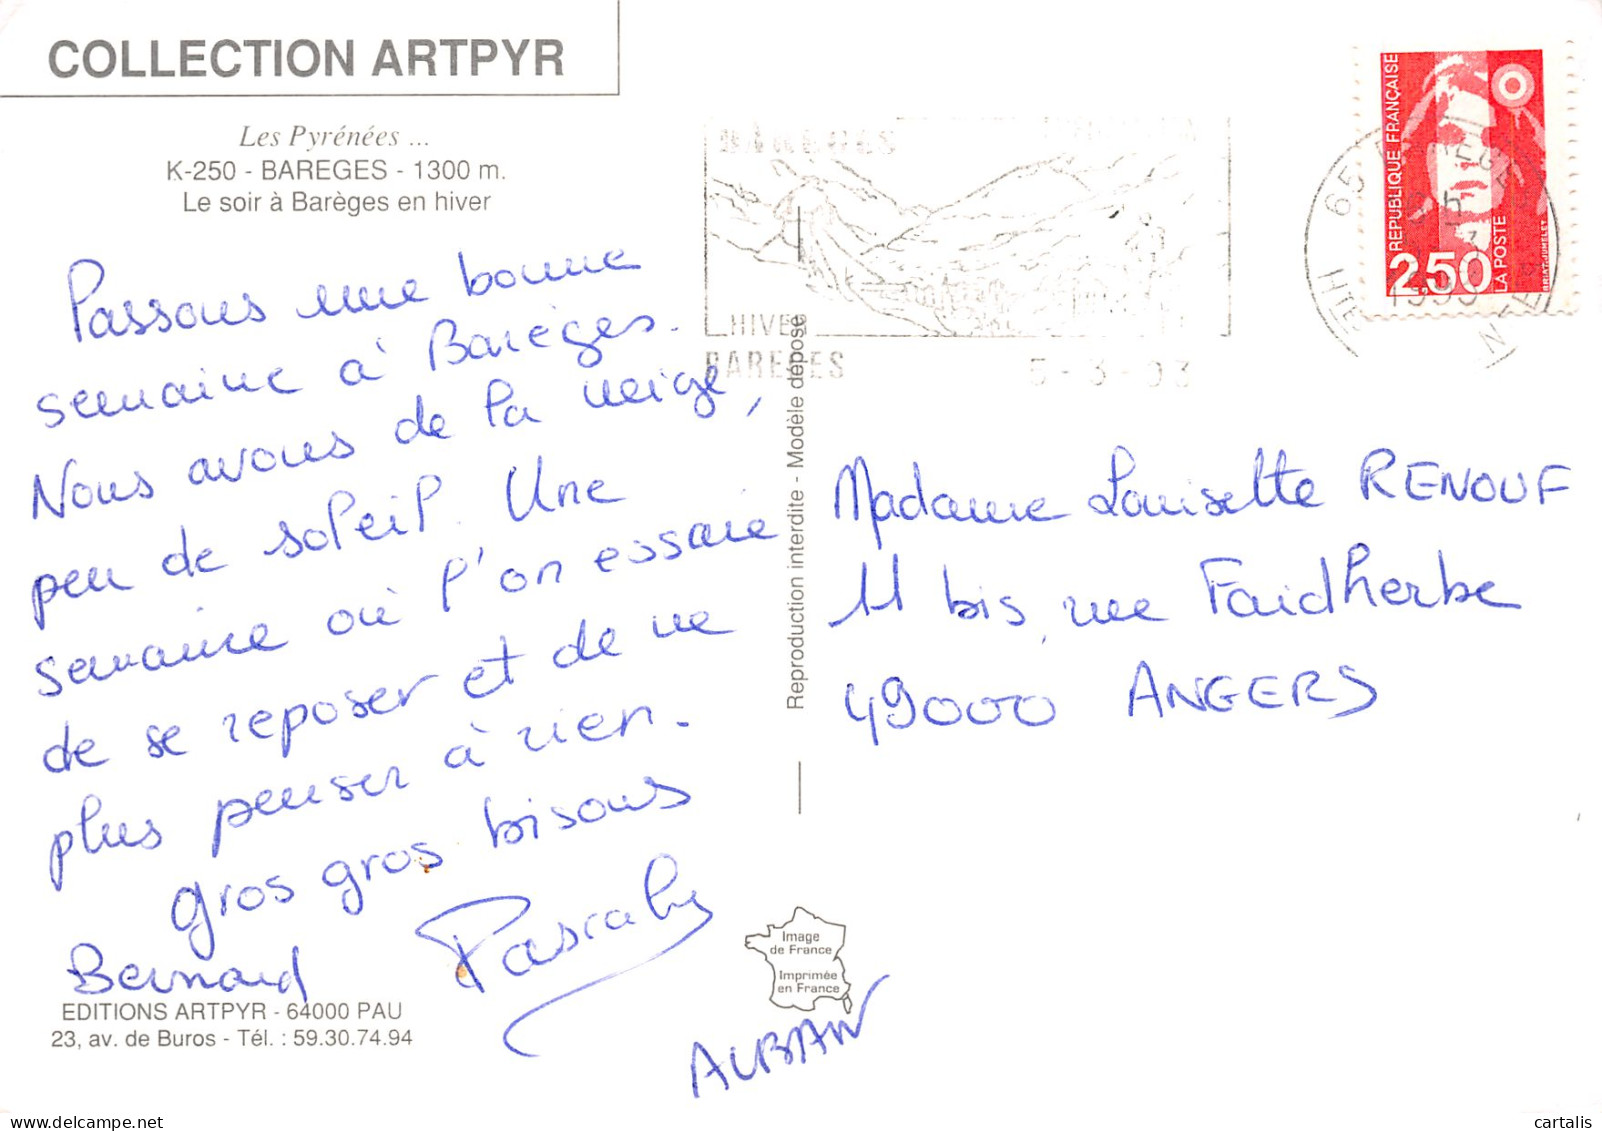 COLLECTION ARTPYR
Les Pyrénées ...
K-250 - BAREGES - 1300 m.
Le soir à Barèges en hiver
Passons une bonne
semaine à Barèges.
Nous avons de la neige,
peu de soleil. Une
semaine où l'on essaie
de se reposer et de ne
plus penser à rien.
gros gros bisous
Bernard
AUBAN
EDITIONS ARTPYR - 64000 PAU
23, av. de Buros - Tél. : 59.30.74.94
Reproduction interdite - Modèle déposé
Image
de France
Imprimée
en France
BAREGES
HIVER
BAREGES
5-3-93
65 BAREGES
1993
REPUBLIQUE FRANÇAISE
2,50
LA POSTE
BRIAT-JUMELET
Madame Louisette RENOUF
11 bis, rue Faidherbe
49000 ANGERS
cartalis